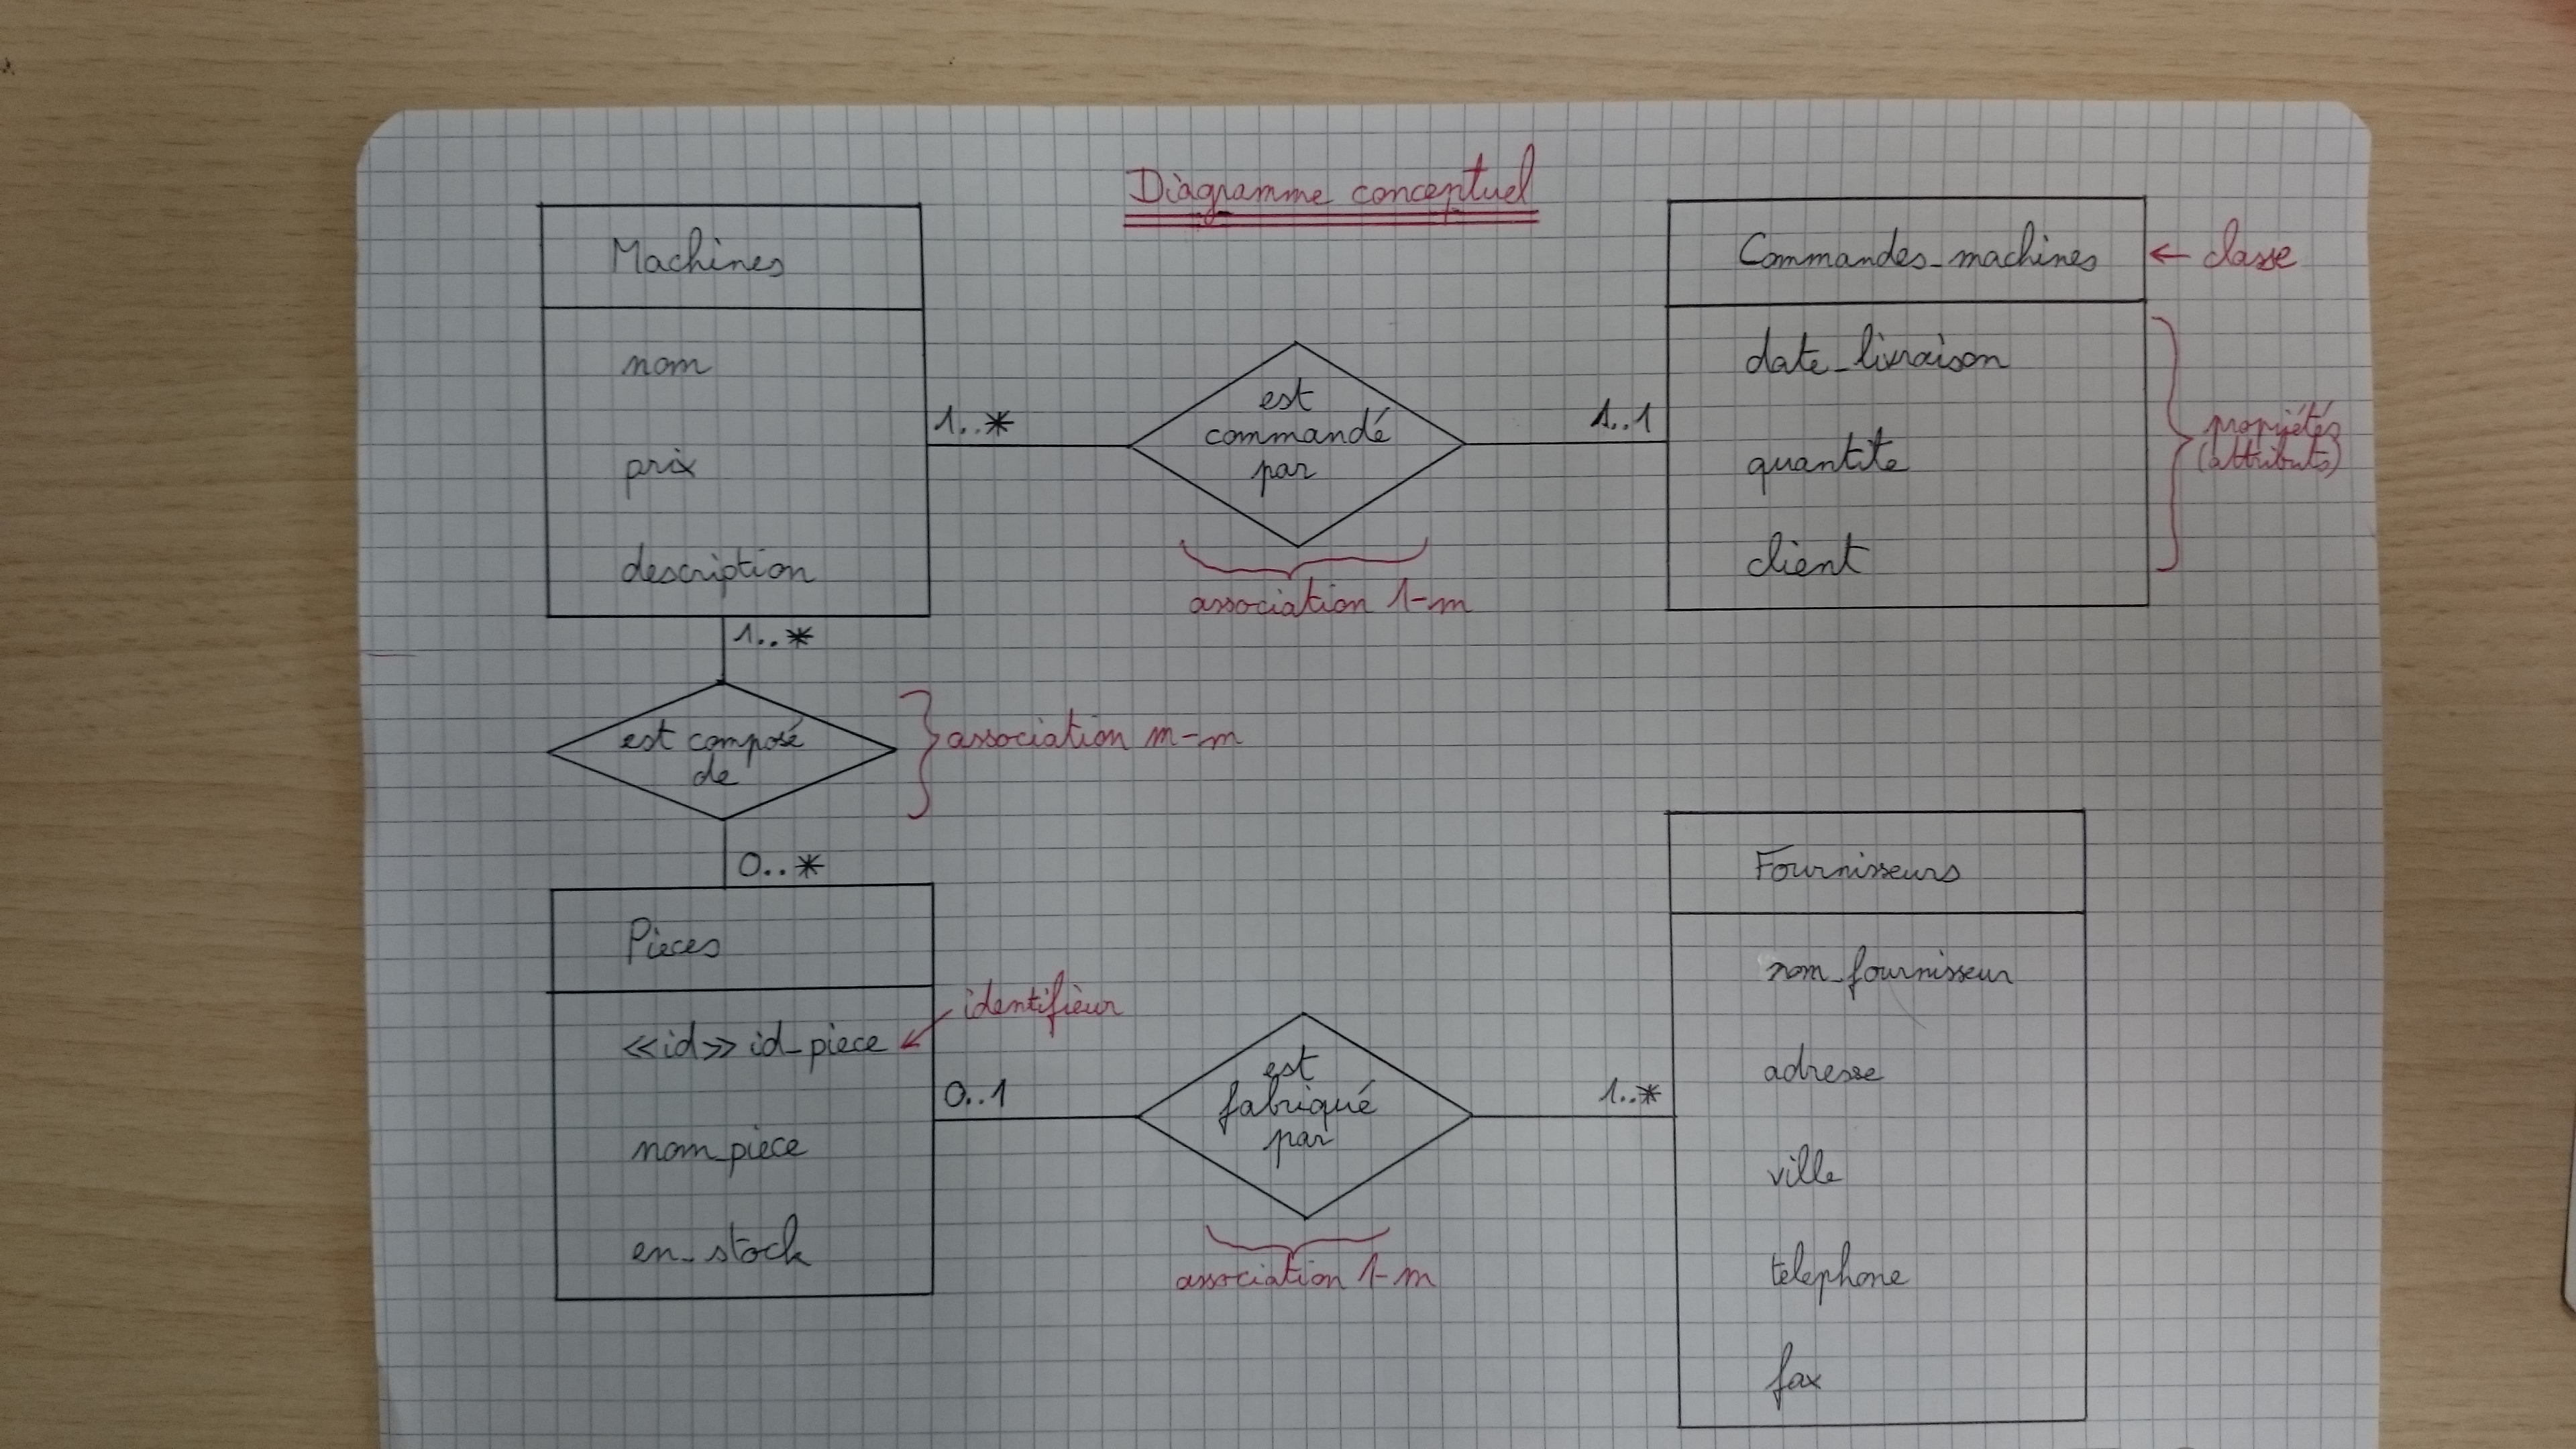 Diagramme conceptuel
Machines
nom
prix
description
1..*
est
commandé
par
1..1
association 1-m
Commandes_machines
← classe
date_livraison
quantite
client
propriétés
(attributs)
1..*
est composé
de
association m-m
0..*
Pieces
<<id>> id_piece
identifieur
nom_piece
en_stock
0..1
est
fabriqué
par
1..*
association 1-m
Fournisseurs
nom_fournisseur
adresse
ville
telephone
fax